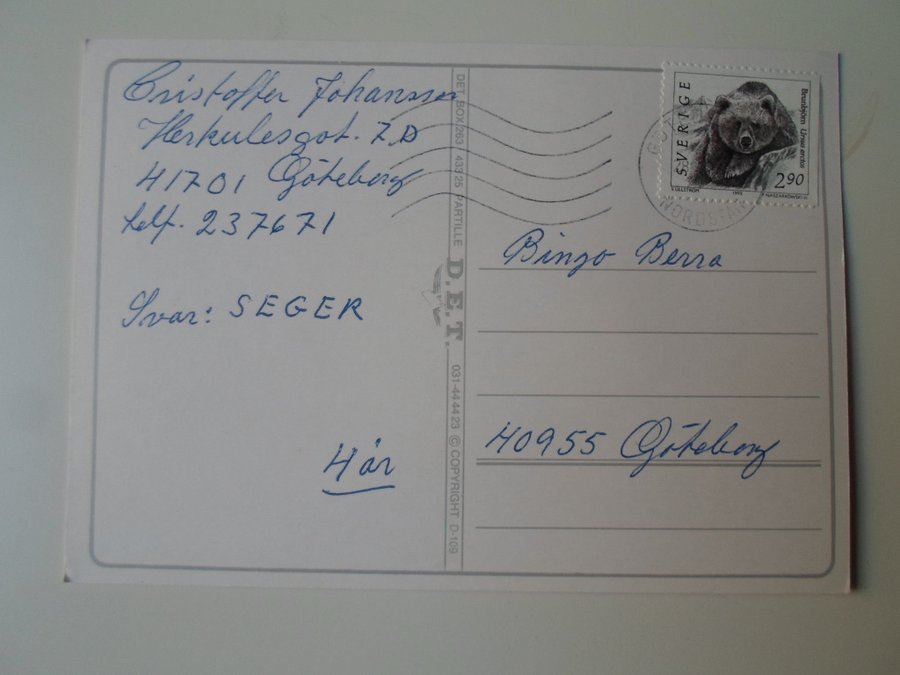 Cristoffer Johansson
Herkulesgat. 7 D
41701 Göteborg
telf. 237671
Svar: SEGER
4 år
DET BOX 263 433 25 PARTILLE
D.E.T.
031-44 44 23 © COPYRIGHT D-109
SVERIGE
Brunbjörn Ursus arctos
2.90
NORDSTAN
Bingo Berra
40955 Göteborg